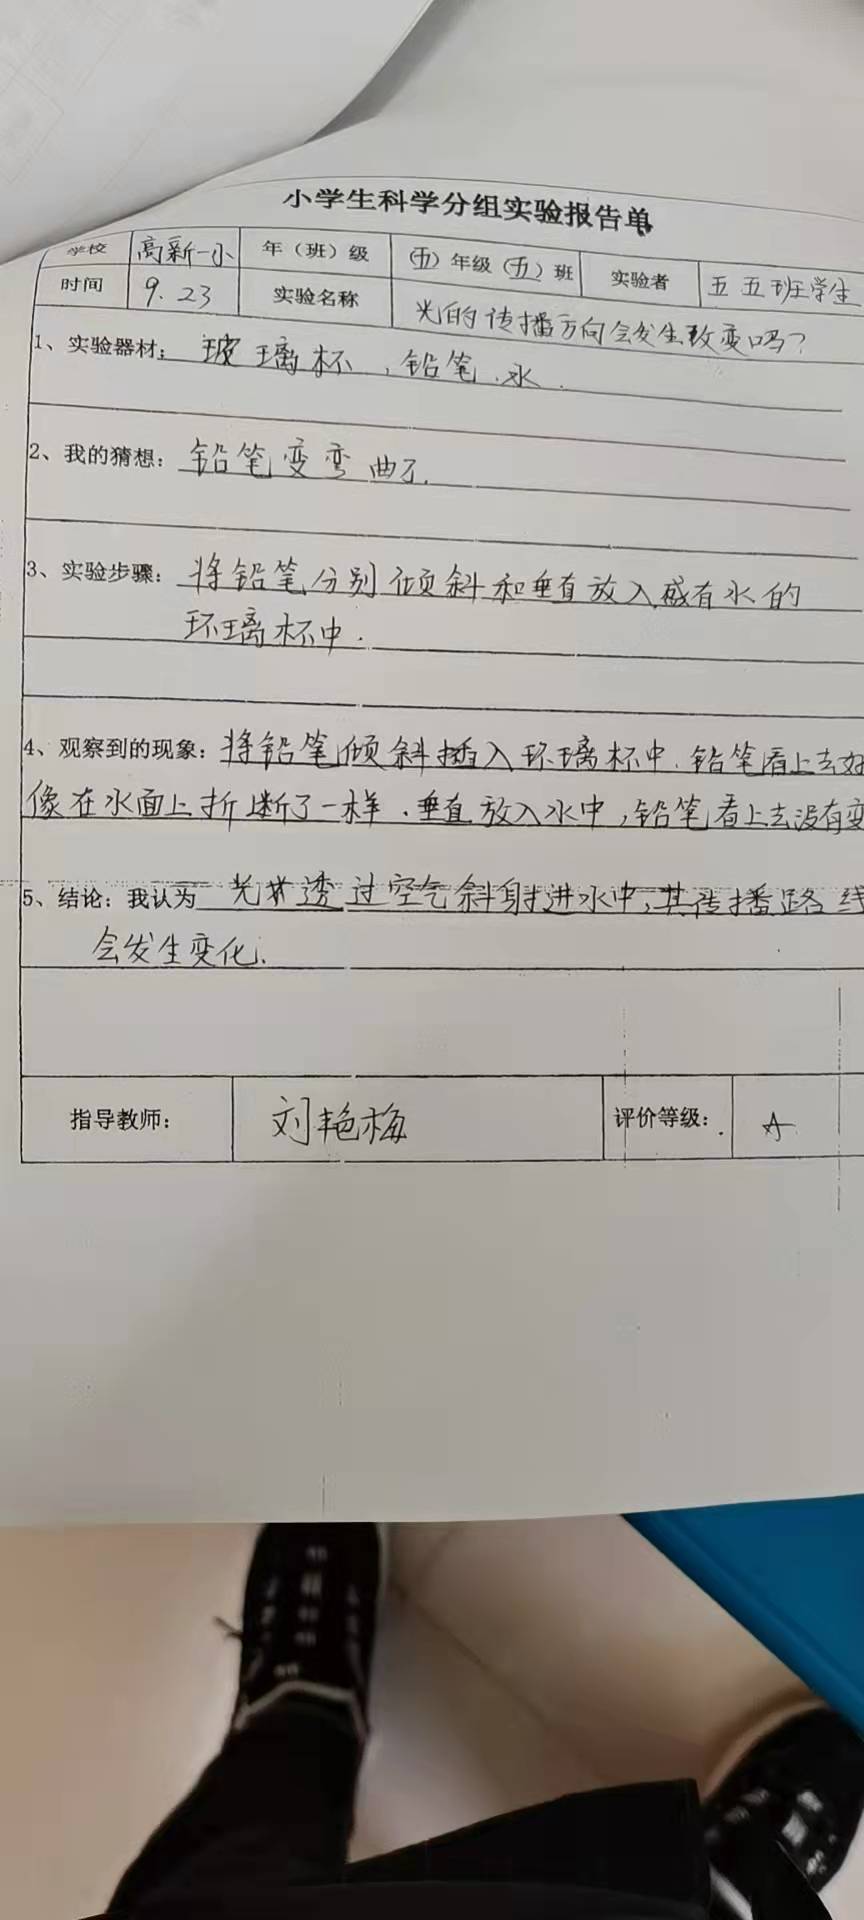 小学生科学分组实验报告单
学校 高新一小 年（班）级 （五）年级（五）班 实验者 五五班学生
时间 9.23 实验名称 光的传播方向会发生改变吗？
1、实验器材：玻璃杯，铅笔、水．
2、我的猜想：铅笔变弯曲了．
3、实验步骤：将铅笔分别倾斜和垂直放入盛有水的
环璃杯中．
4、观察到的现象：将铅笔倾斜插入环璃杯中．铅笔看上去好
像在水面上折断了一样．垂直放入水中，铅笔看上去没有变
5、结论：我认为 透过空气斜射进水中，其传播路线
会发生变化．
指导教师： 刘艳梅 评价等级： A